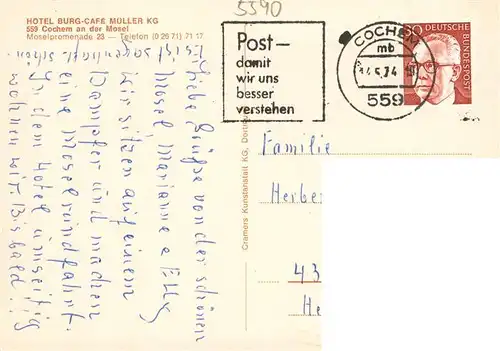 5390
HOTEL BURG-CAFÉ MÜLLER KG
559 Cochem an der Mosel
Moselpromenade 23 — Telefon (0 26 71) 71 17
Es ist sagenhaft schön.
Liebe Grüße von der schönen
Mosel, Marianne &
Wir sitzen auf einem
Dampfer und machen
eine Moselrundfahrt.
In dem Hotel umseitig
wohnen wir. Bis
bald!!
Cramers Kunstanstalt KG,
Post—
damit
wir uns
besser
verstehen
COCHEM
mb
559
DEUTSCHE
BUNDESPOST
Familie
Herbe
43
He